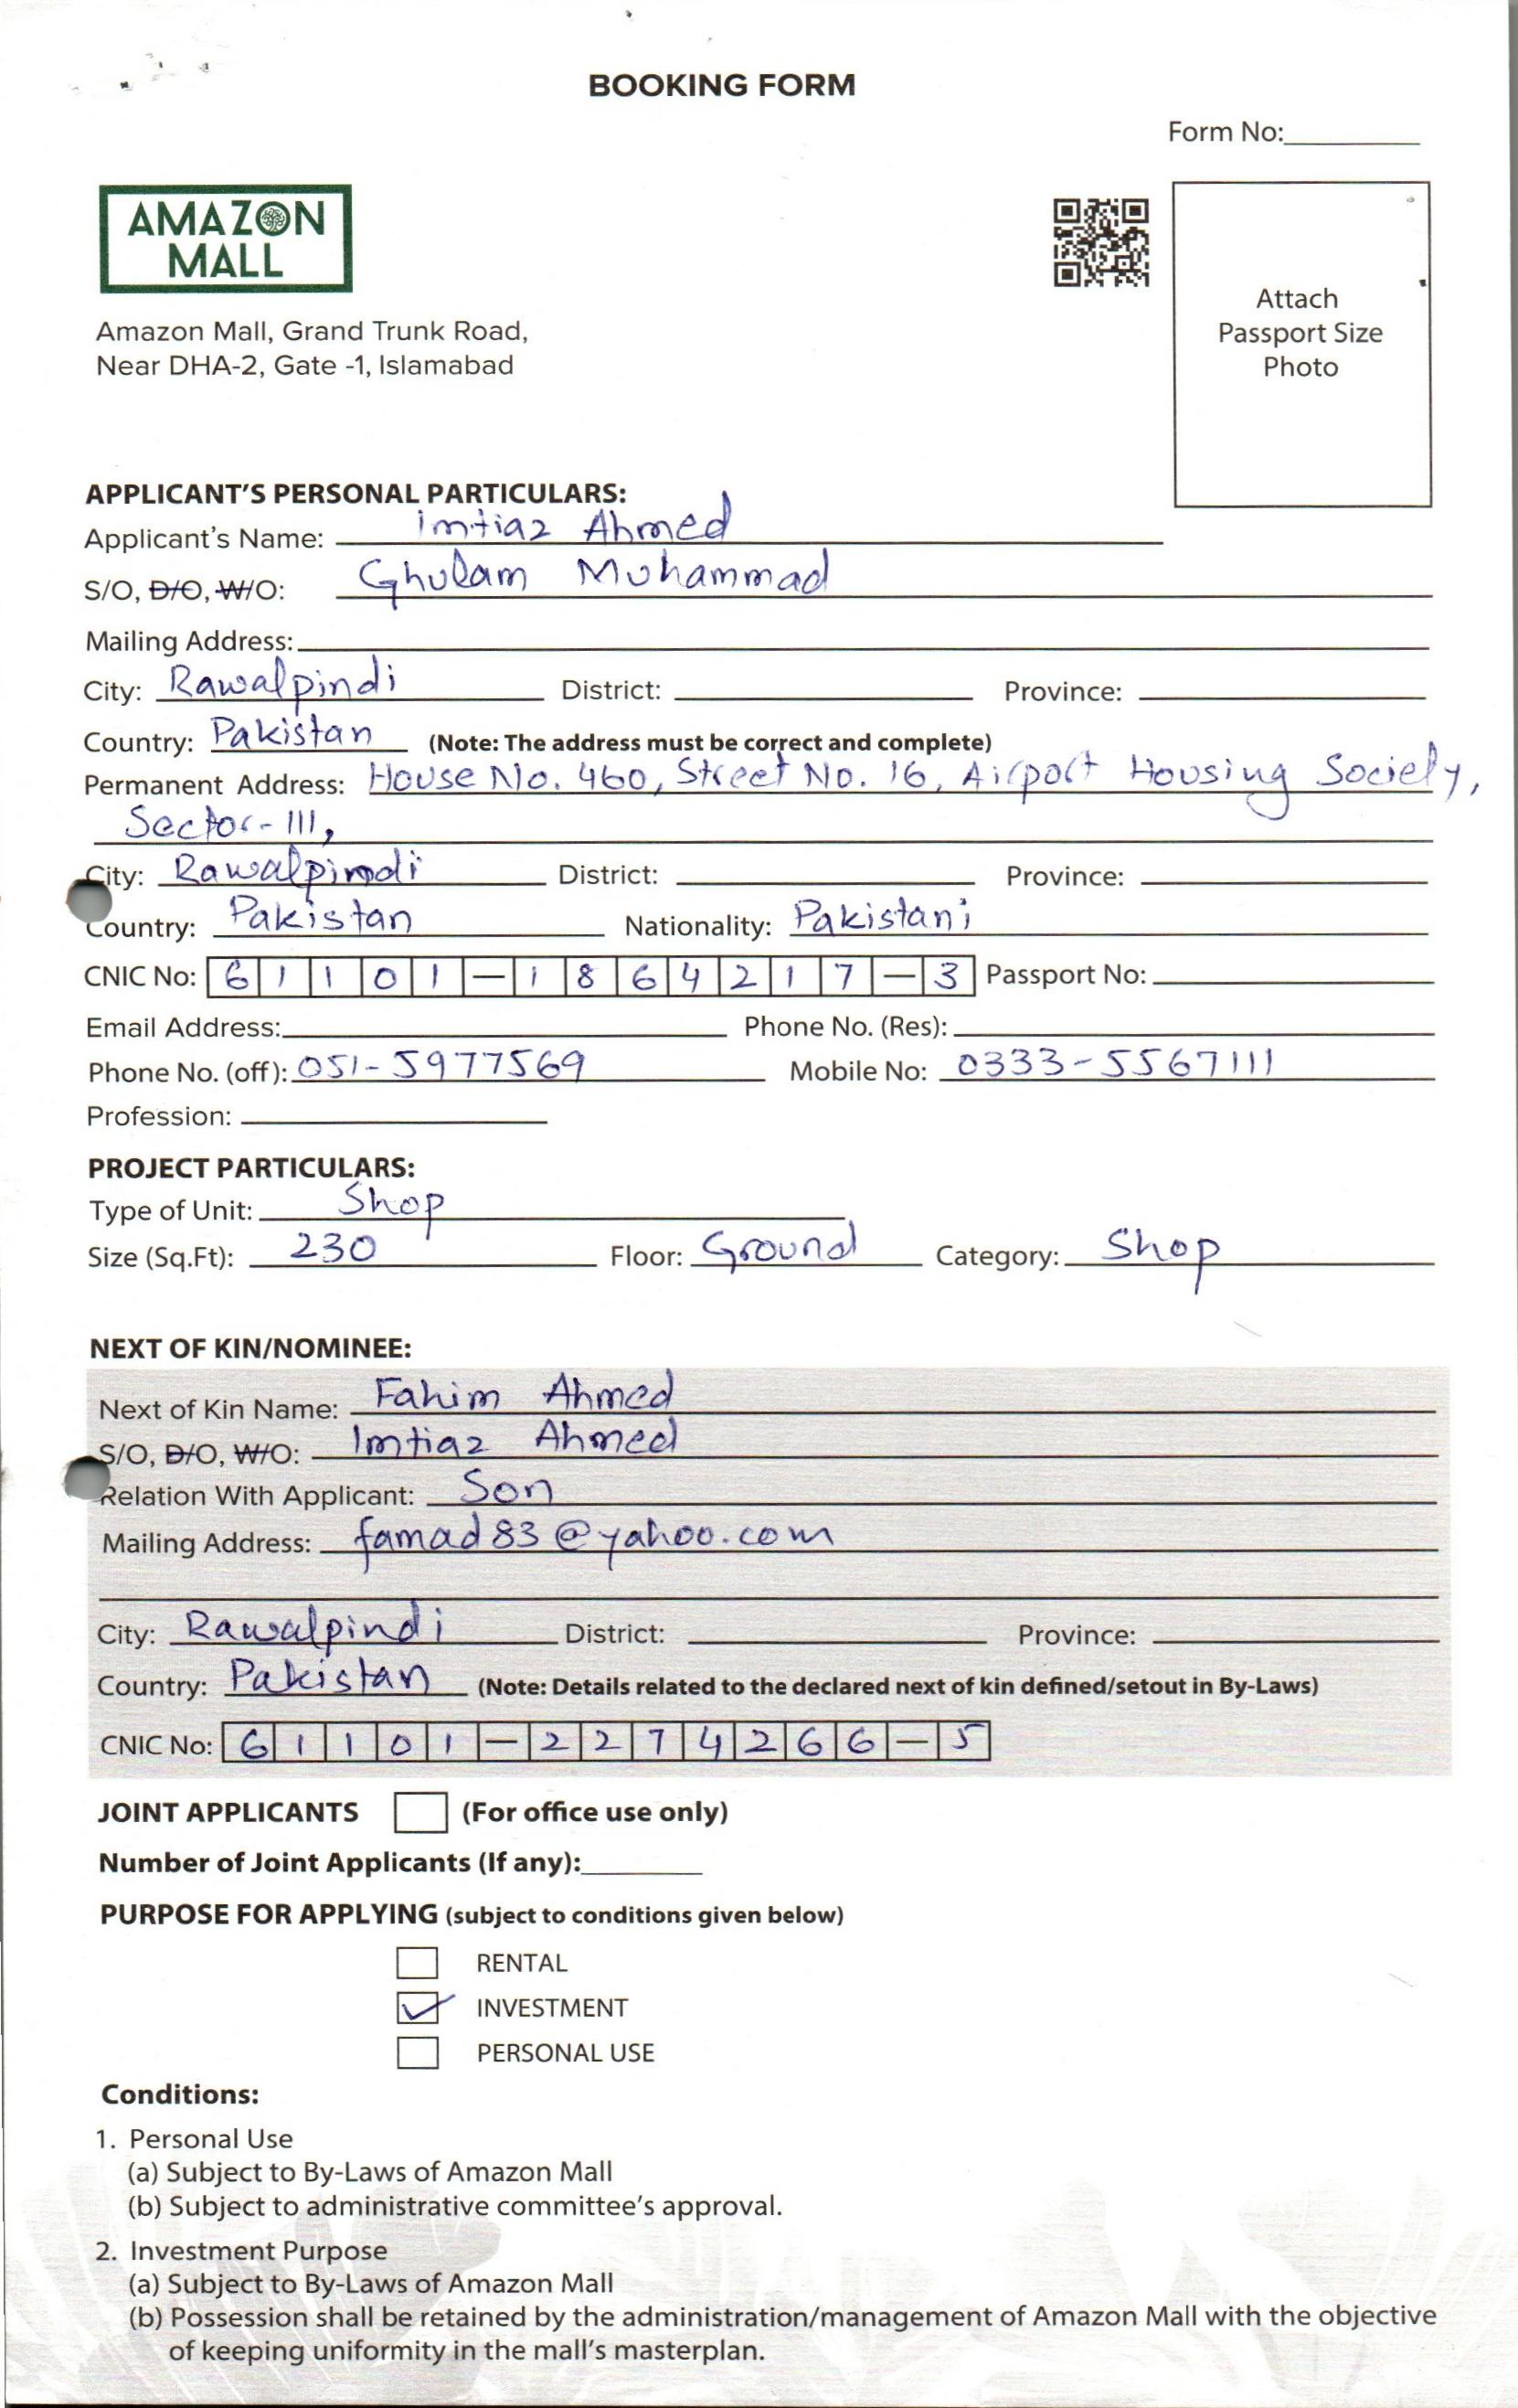 BOOKING FORM
Form No:
AMAZON
MALL
Amazon Mall, Grand Trunk Road,
Near DHA-2, Gate -1, Islamabad
Attach
Passport Size
Photo
APPLICANT'S PERSONAL PARTICULARS:
Applicant's Name: Imtiaz Ahmed
S/O, D/O, W/O: Ghulam Muhammad
Mailing Address:
City: Rawalpindi District: Province:
Country: Pakistan (Note: The address must be correct and complete)
Permanent Address: House No. 460, Street No. 16, Airport Housing Society,
Sector-III,
City: Rawalpindi District: Province:
Country: Pakistan Nationality: Pakistani
CNIC No: 61101-1864217-3 Passport No:
Email Address: Phone No. (Res):
Phone No. (off): 051-5977569 Mobile No: 0333-5567111
Profession:
PROJECT PARTICULARS:
Type of Unit: Shop
Size (Sq.Ft): 230 Floor: Ground Category: Shop
NEXT OF KIN/NOMINEE:
Next of Kin Name: Fahim Ahmed
S/O, D/O, W/O: Imtiaz Ahmed
Relation With Applicant: Son
Mailing Address: famad83@yahoo.com
City: Rawalpindi District: Province:
Country: Pakistan (Note: Details related to the declared next of kin defined/setout in By-Laws)
CNIC No: 61101-2274266-5
JOINT APPLICANTS (For office use only)
Number of Joint Applicants (If any):
PURPOSE FOR APPLYING (subject to conditions given below)
RENTAL
INVESTMENT
PERSONAL USE
Conditions:
1. Personal Use
(a) Subject to By-Laws of Amazon Mall
(b) Subject to administrative committee's approval.
2. Investment Purpose
(a) Subject to By-Laws of Amazon Mall
(b) Possession shall be retained by the administration/management of Amazon Mall with the objective
of keeping uniformity in the mall's masterplan.